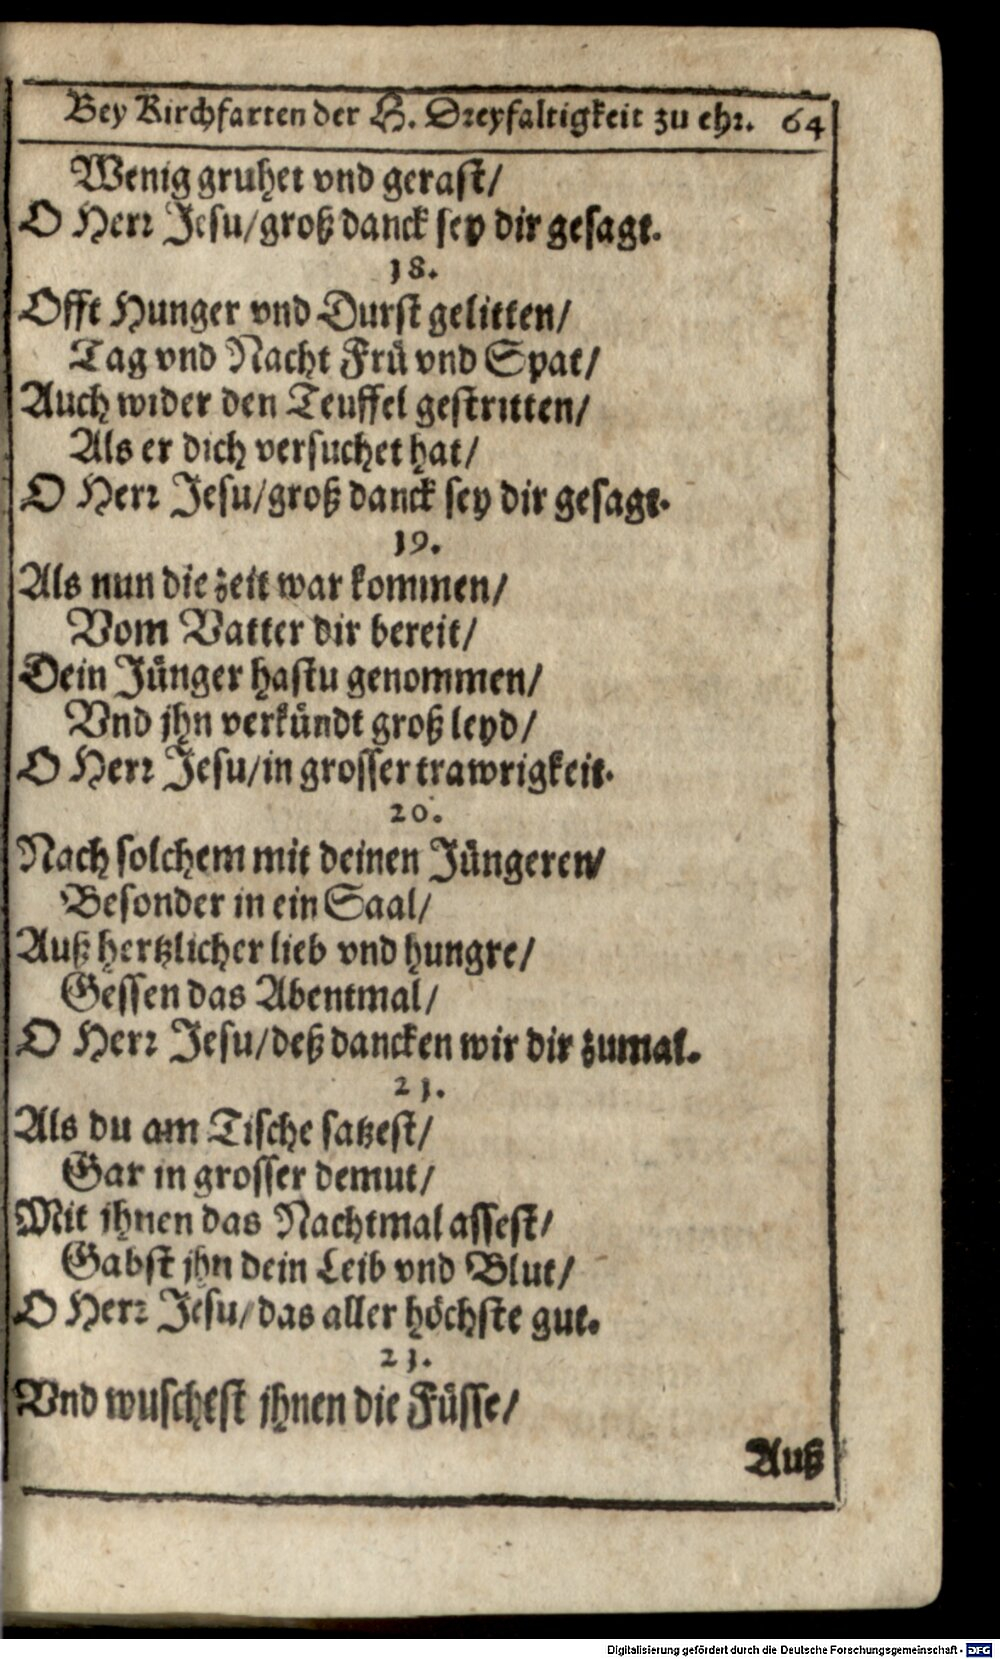 Bey Kirchfarten der H. Dreyfaltigkeit zu ehr. 64
Wenig gruhet vnd gerast/
O Herr Jesu/groß danck sey dir gesagt.
18.
Offt Hunger vnd Durst gelitten/
Tag vnd Nacht Frü vnd Spat/
Auch wider den Teuffel gestritten/
Als er dich versuchet hat/
O Herr Jesu/groß danck sey dir gesagt.
19.
Als nun die zeit war kommen/
Vom Vatter dir bereit/
Dein Jünger hastu genommen/
Vnd jhn verkündt groß leyd/
O Herr Jesu/in grosser trawrigkeit.
20.
Nach solchem mit deinen Jüngeren/
Besonder in ein Saal/
Auß hertzlicher lieb vnd hungre/
Gessen das Abentmal/
O Herr Jesu/deß dancken wir dir zumal.
21.
Als du am Tische satzest/
Gar in grosser demut/
Mit jhnen das Nachtmal assest/
Gabst jhn dein Leib vnd Blut/
O Herr Jesu/das aller höchste gut.
21.
Vnd wuschest jhnen die Füsse/
Auß
Digitalisierung gefördert durch die Deutsche Forschungsgemeinschaft - DFG